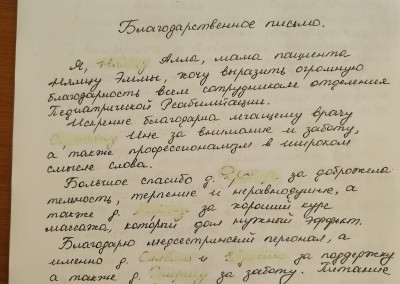 Благодарственное письмо.
Я, Аллы, мама пациента
Эммы, хочу выразить огромную
благодарность всем сотрудникам отделения
Педиатрической Реабилитации.
Искренне благодарна лечащему врачу
Инне за внимание и заботу,
а также профессионализм в широком
смысле слова.
Большое спасибо д. за доброжела
тельность, терпение и неравнодушие, а
также д. за хороший курс
массажа, который дал нужный эффект.
Благодарю медсестринский персонал, а
именно д. и за поддержку
а также д. за заботу. Питание